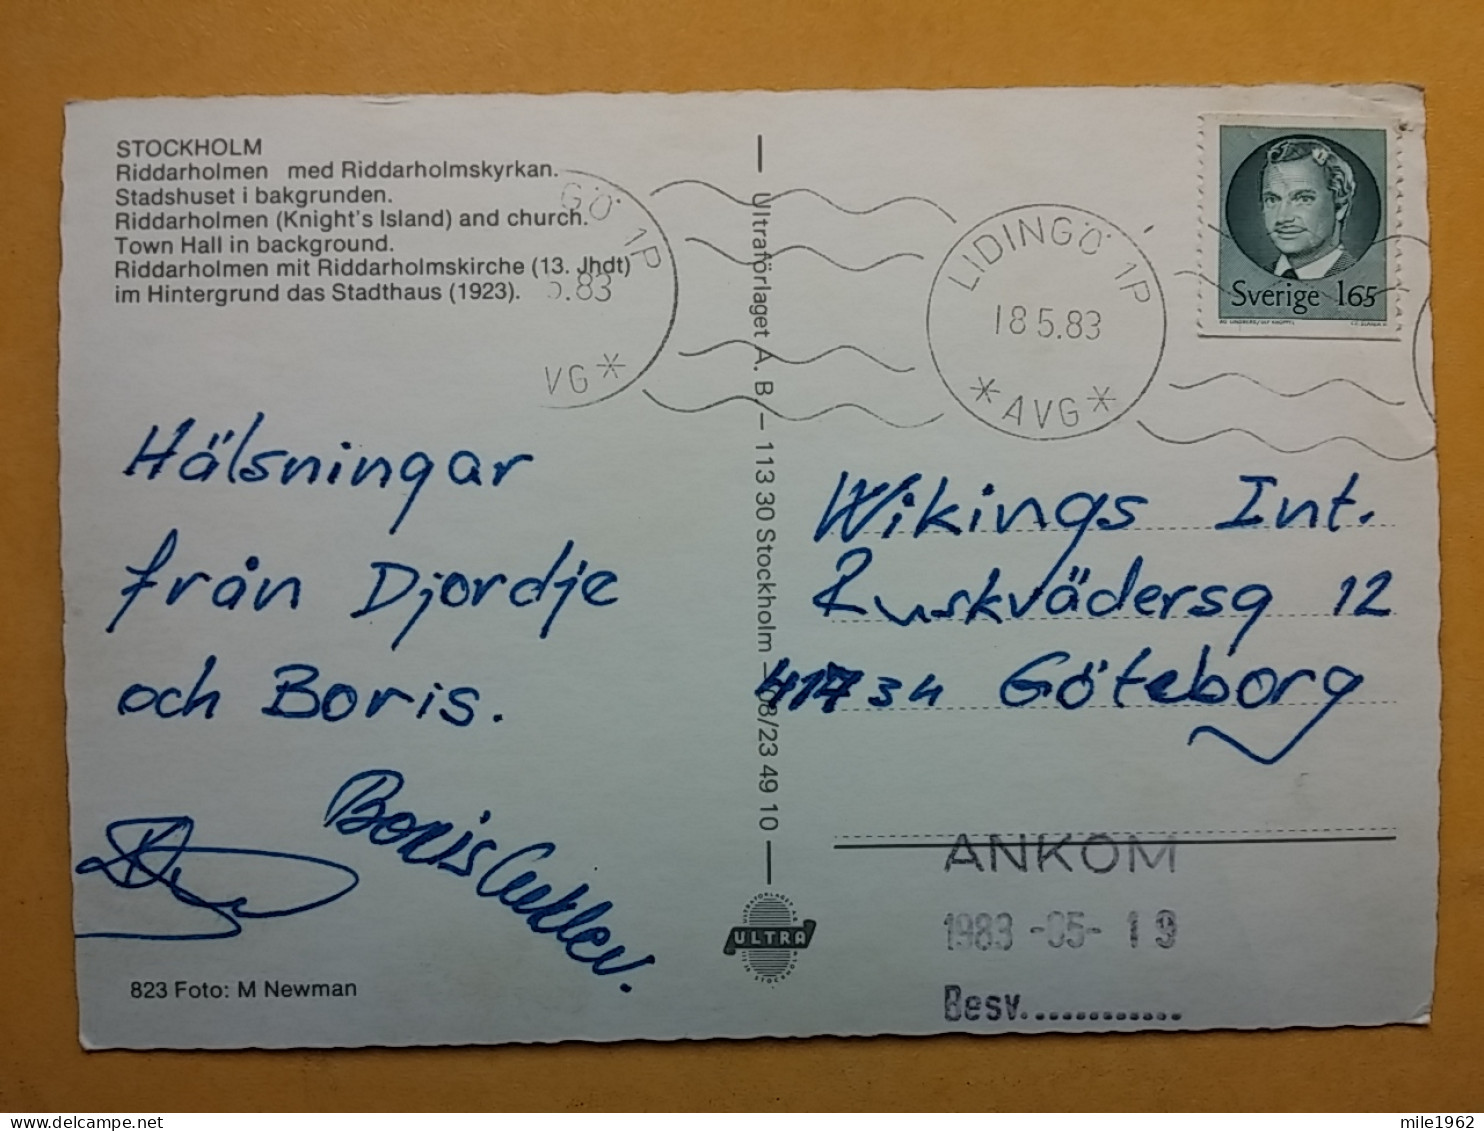 STOCKHOLM
Riddarholmen med Riddarholmskyrkan.
Stadshuset i bakgrunden.
Riddarholmen (Knight's Island) and church.
Town Hall in background.
Riddarholmen mit Riddarholmskirche (13. Jhdt)
im Hintergrund das Stadthaus (1923).
GÖ 1P
5.83
VG *
LIDINGÖ 1P
18 5.83
* AVG *
Sverige 165
Hälsningar
från Djordje
och Boris.
Boris
823 Foto: M Newman
Ultraförlaget A. B – 113 30 Stockholm – 08/23 49 10
ULTRA
Wikings Int.
Ruskvädersg 12
417 34 Göteborg
ANKOM
1983 -05- 19
Besv............
mile1962